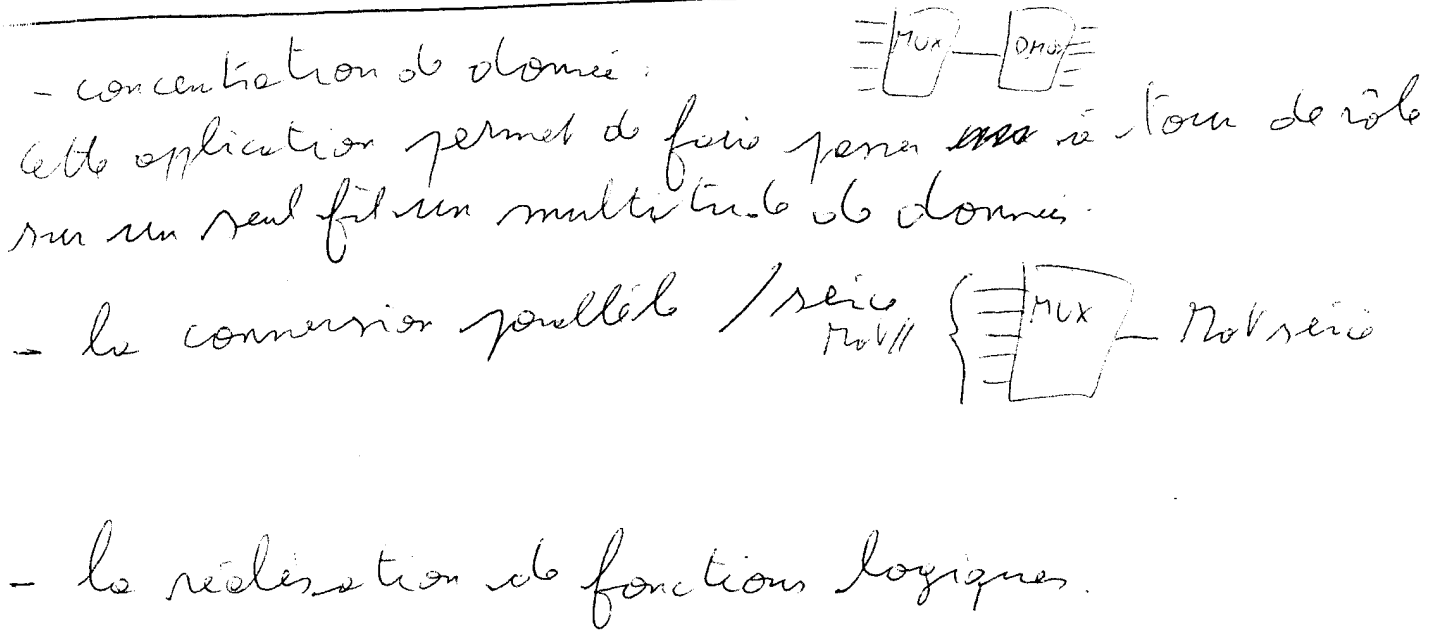 - concentration de donnée.
MUX DMUX
cette application permet de faire passer à tour de rôle
sur un seul fil un multitude de données.
- la conversion parallèle / série
Mot // MUX Mot série
- la réalisation de fonctions logiques.